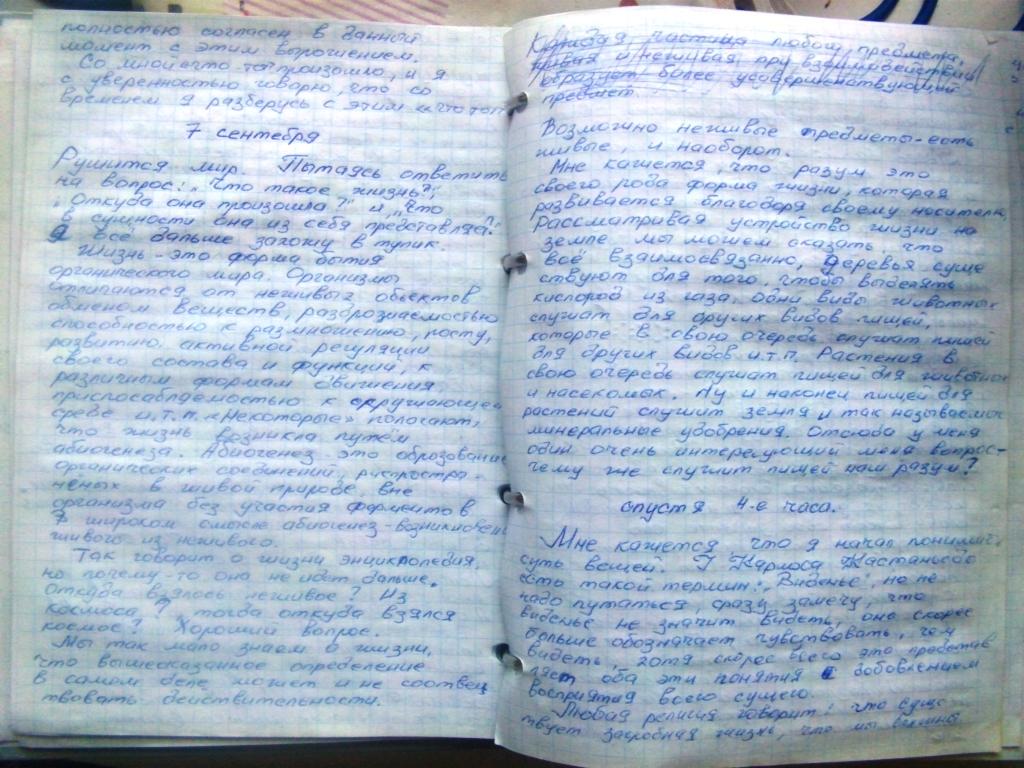 полностью согласен в данный
момент с этим
Со мной что-то произошло, и я
с уверенностью говорю, что со
временем я разберусь с этим «что то»
7 сентебря
Рушится мир. Пытаясь ответить
на вопрос: "Что такое жизнь?",
"Откуда она произошла?" и "Что
в сущности она из себя представляет?"
я всё дальше захожу в тупик.
Жизнь - это форма бытия
органического мира. Организмы
отличаются от неживых обьектов
обменом веществ, раздрознаемостью
способностью к размножению, росту,
развитию, активной регуляции
своего состава и функции, к
различным формам движения,
приспосабляемостью к окружающей
среде и.т.п. «Некоторые» пологают,
что жизнь возникла путем
абиогенеза. Абиогенез - это оброзование
органических соединений, распростра-
неных в живой природе вне
организма без участия ферментов.
В широком смысле абиогенез - возникновение
живого из неживого.
Так говорит о жизни энциклопедия,
но почему-то она не идет дальше.
Откуда взялось неживое? Из
космоса? тогда откуда взялся
космос? Хороший вопрос.
Мы так мало знаем о жизни,
что вышесказанное определение
в самом деле может и не соответ
твовать действительности.
Каждая частица любого предмета,
живая и неживая при взаимодействии
образует более усовершенствующий
предмет
Возможно неживые предметы - есть
живые, и наоборот.
Мне кажется, что разум это
своего рода форма жизни, которая
развивается благодаря своему носителю.
Рассматривая устройство жизни на
земле мы можем сказать что
всё взаимосвязанно, деревья суще
ствуют для того, чтобы выделять
кислород из газа, одни виды животных
служат для других видов пищей,
которые в свою очередь служат пищей
для других видов и.т.п. Растения в
свою очередь служат пищей для животных
и насекомых. Ну и наконец пищей для
растений служит земля и так называемые
минеральные удобрения. Отсюда у меня
один очень интересующий меня вопрос -
чему же служит пищей наш разум?
спустя 4-е часа.
Мне кажется что я начал понимать
суть вещей. У Карлоса Кастаньедо
есть такой термин: "Виденье", но не
надо путаться, сразу замечу, что
виденье не значит видеть, оно скорее
больше обозначает чувствовать, чем
видеть, хотя скорее всего это представ
ляет оба эти понятия с добовлением
восприятия всего сущего.
Любая религия говорит: что суще
твует загробная жизнь, что мы